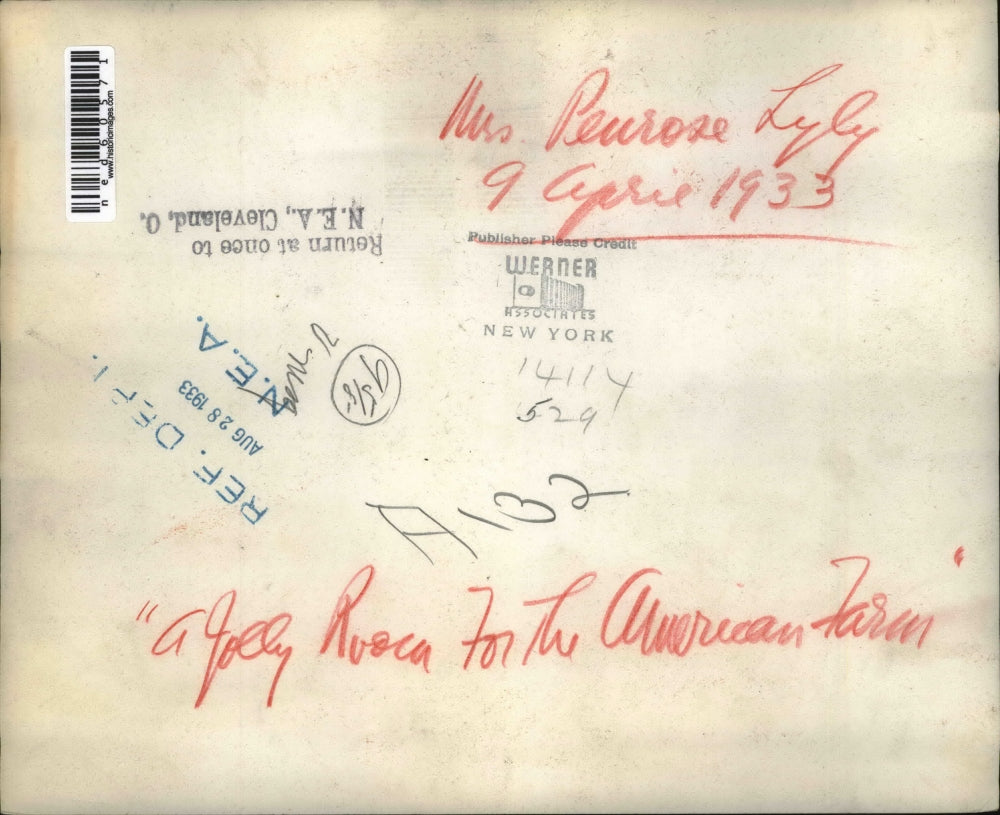 Mrs. Penrose Lyly
9 April 1933
Publisher Please Credit
WERNER
ASSOCIATES
NEW YORK
14114
529
Return at once to
N.E.A., Cleveland, O.
ned60571
www.historicimages.com
REF. DEPT.
AUG 28 1933
N.E.A.
A 132
"A Jolly Room For The American Farm"